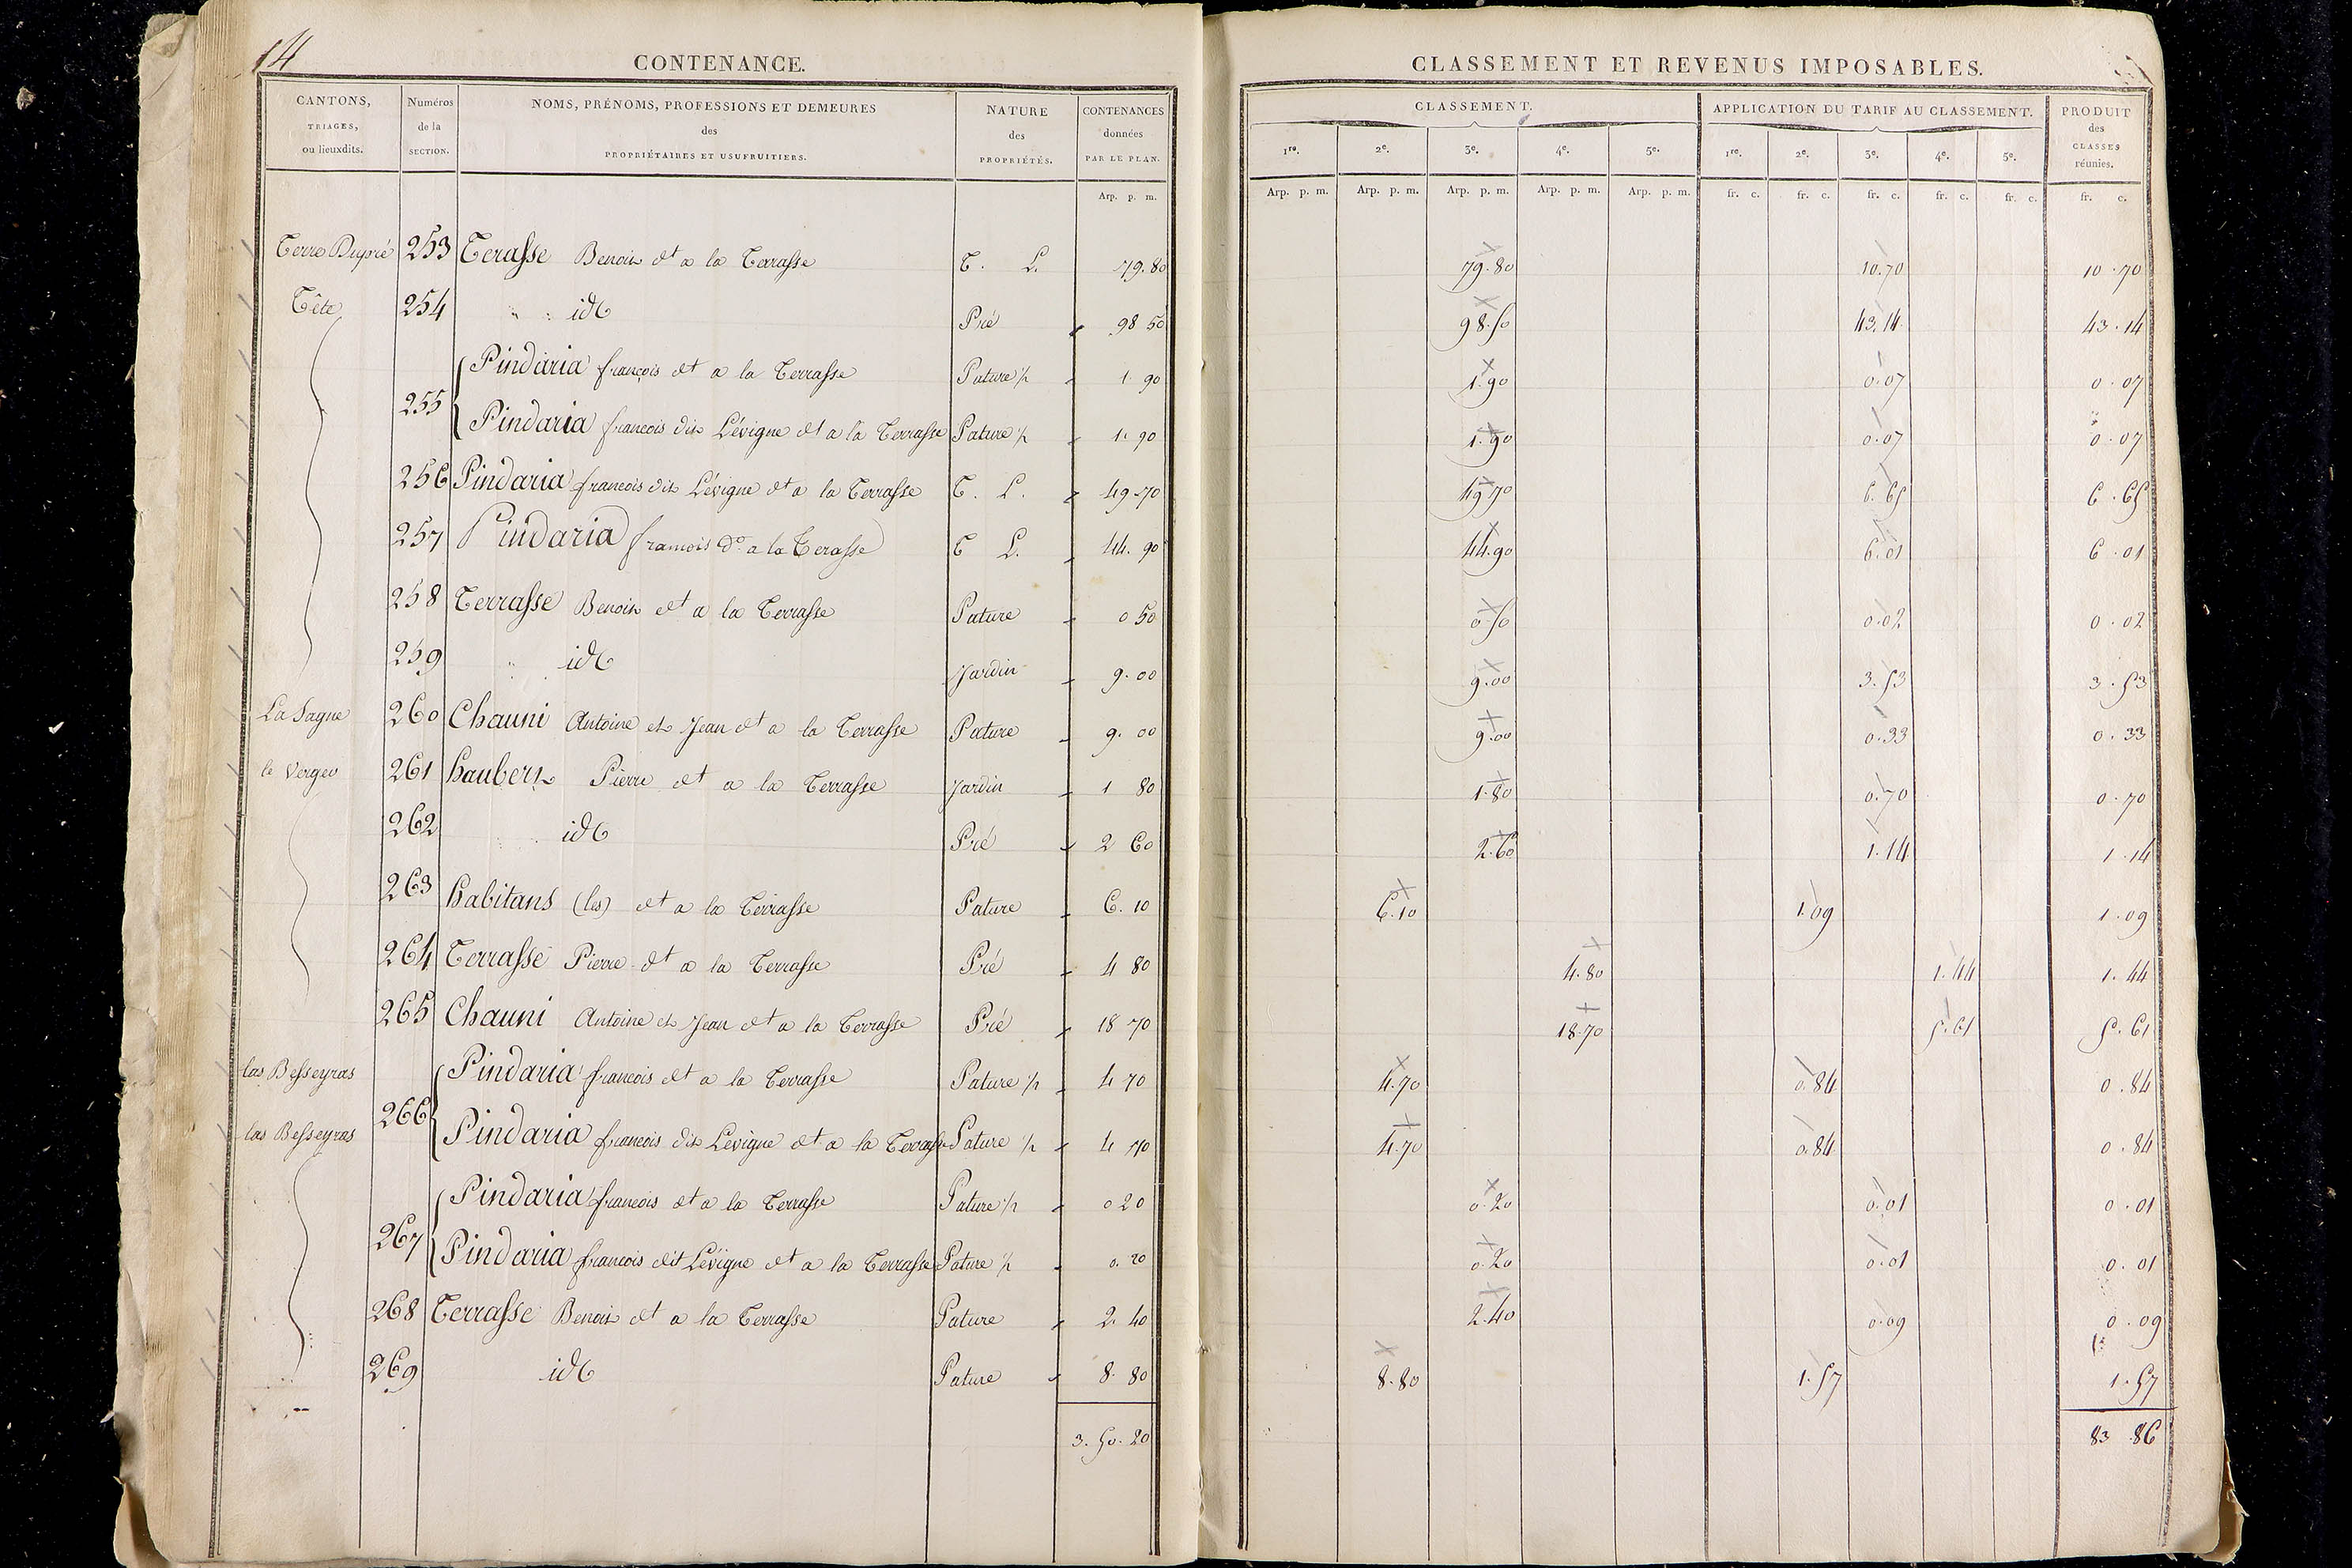 14
CONTENANCE.
CANTONS, TRIAGES, ou lieuxdits.
Numéros de la SECTION.
NOMS, PRÉNOMS, PROFESSIONS ET DEMEURES des PROPRIÉTAIRES ET USUFRUITIERS.
NATURE des PROPRIÉTÉS.
CONTENANCES données PAR LE PLAN.
Arp. p. m.
CLASSEMENT ET REVENUS IMPOSABLES.
CLASSEMENT.
APPLICATION DU TARIF AU CLASSEMENT.
PRODUIT des CLASSES réunies.
1re. 2e. 3e. 4e. 5e. 1re. 2e. 3e. 4e. 5e.
Arp. p. m. Arp. p. m. Arp. p. m. Arp. p. m. Arp. p. m. fr. c. fr. c. fr. c. fr. c. fr. c. fr. c.
Terre Dupré 253 Terasse Benoit et a la Terrasse T. L. 79.80 79.80 10.70 10.70
Tête 254 id Pré 98 50 98.50 43.14 43.14
Pindaria françois et a la Terrasse Pature ½ 1 90 1.90 0.07 0.07
255
Pindaria francois dit Lévigne et a la Terrasse Pature ½ 1. 90 1.90 0.07 0.07
256 Pindaria francois dit Lévigne et a la Terrasse T. L. 49.70 49 70 6.65 6.65
257 Pindaria francois do a la Terasse T L. 44.90 44.90 6.01 6.01
258 Terrasse Benoit et a la Terrasse Pature 0 50 0.50 0.02 0.02
259 id Jardin 9.00 9.00 3.53 3.53
La Sagne 260 Chauni Antoine et Jean et a la Terrasse Pature 9.00 9.00 0.33 0.33
le Verger 261 haubert Pierre et a la Terrasse Jardin 1 80 1.80 0.70 0.70
262 id Pré 2 60 2.60 1.14 1.14
263 habitans (les) et a la Terrasse Pature 6.10 6.10 1.09 1.09
264 Terrasse Pierre et a la Terrasse Pré 4 80 4.80 1.44 1.44
265 Chauni Antoine et Jean et a la Terrasse Pré 18 70 18.70 5.61 5.61
las Besseyras Pindaria francois et a la Terrasse Pature ½ 4 70 4.70 0.84 0.84
266
las Besseyras Pindaria francois dit Levigne et a la Terrasse Pature ½ 4 70 4.70 0.84 0.84
Pindaria francois et a la Terrasse Pature ½ 0 20 0.20 0.01 0.01
267
Pindaria francois dit Lévigne et a la Terrasse Pature ½ 0.20 0.20 0.01 0.01
268 Terrasse Benoit et a la Terrasse Pature 2.40 2.40 0.09 0.09
269 id Pature 8.80 8.80 1.57 1.57
3.50.20 83.86